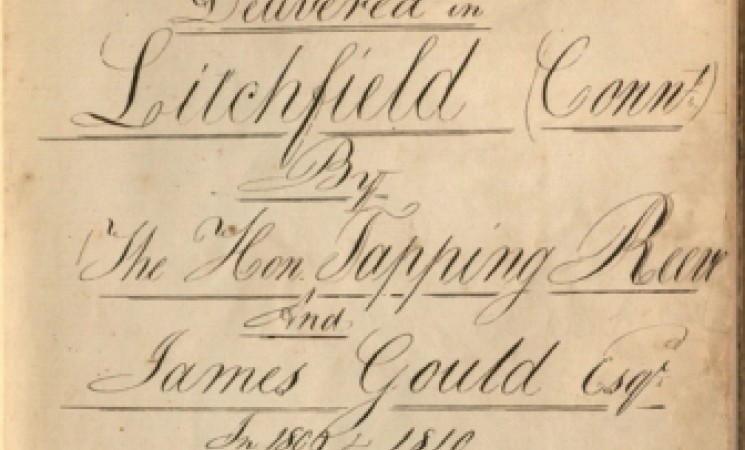 Delivered in
Litchfield (Connt.)
By
The Hon. Tapping Reeve
And
James Gould Esqr.
In 1809 & 1810